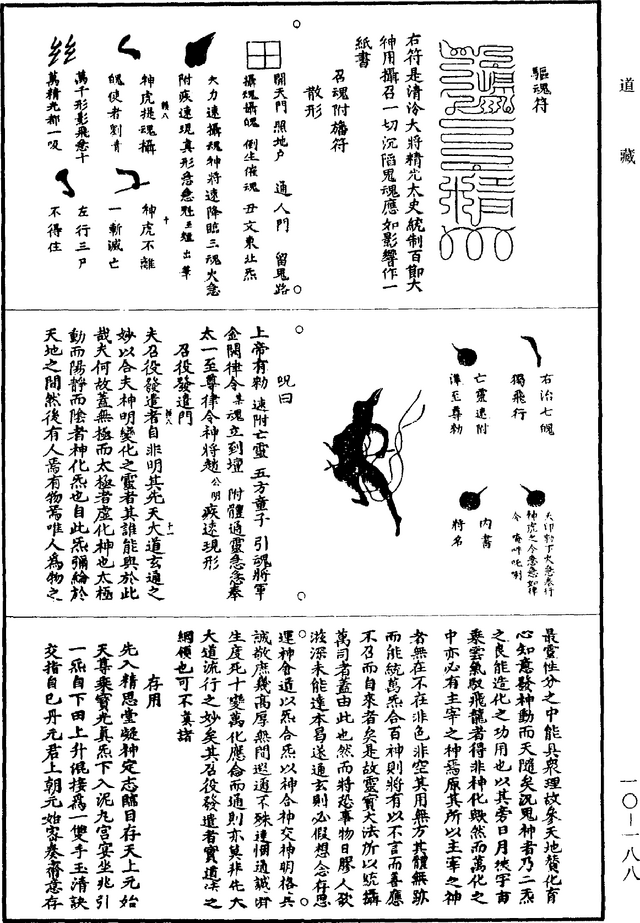 道藏
驅魂符
右符是清泠大將精光太史統制百節大
神用攝召一切沉滔鬼魂應如影響作一
紙書
召魂附旛符
散形
開天門 照地戶 通人門 留鬼路
攝魂攝魄 倒生催魂 丑文東北炁
火力速攝魂神將速降臨三魂火急
附疾速現真形急急
出筆
神虎捉魂攝
魄使者劉青
神虎不離
一斬滅亡
萬千形影飛急千
萬精光都一吸
左行三尸
不得住
右治七魄
獨飛行
亡靈速附
準至尊勅
大印勅下火急奉行
神虎之令急急如律
令
內書
將名
呪曰
上帝有勅 速附亡靈 五方童子 引魂將軍
金闕律令某魂立到壇 附體通靈急急奉
太一至尊律令神將趙公明疾速現形
召役發遣門
夫召役發遣者自非明其先天大道玄通之
妙以合夫神明變化之靈者其誰能與於此
哉夫何故蓋無極而太極者虛化神也太極
動而陽靜而陰者神化炁也自此炁彌綸於
天地之間然後有人焉有物焉唯人為物之
最靈性分之中能具衆理故參天地贊化育
心知意發神動而天隨矣況鬼神者乃二炁
之良能造化之功用也以其旁日月挾宇宙
乘雲氣馭飛龍者得非神化毀然而萬化之
中亦必有主宰之神焉原其所以主宰之神
者無在不在非色非空其用無方其體無跡
而能統萬炁合百神則將有以不言而善應
不召而自來者矣是故靈寶大法所以統攝
萬司者蓋由此也然而將恐事物日膠人欲
滋深未能達本易遂通玄則必假想念存思
運神會道以炁合炁以神合神交神明格兵
誠敬庶幾高厚無間遐邇不殊達悃通誠昨
生度死千變萬化應侖而通則亦莫非先天
大道流行之妙矣其召役發遣者實道法之
綱領也可不真諸
存用
先入精思堂凝神定志瞑目存天上元始
天尊乘寶光真炁下入泥九宮安坐兆引
一炁自下田上升混接爲一雙手玉清訣
交指自己丹元君上朝元始家奏齋意存
一〇—一八八